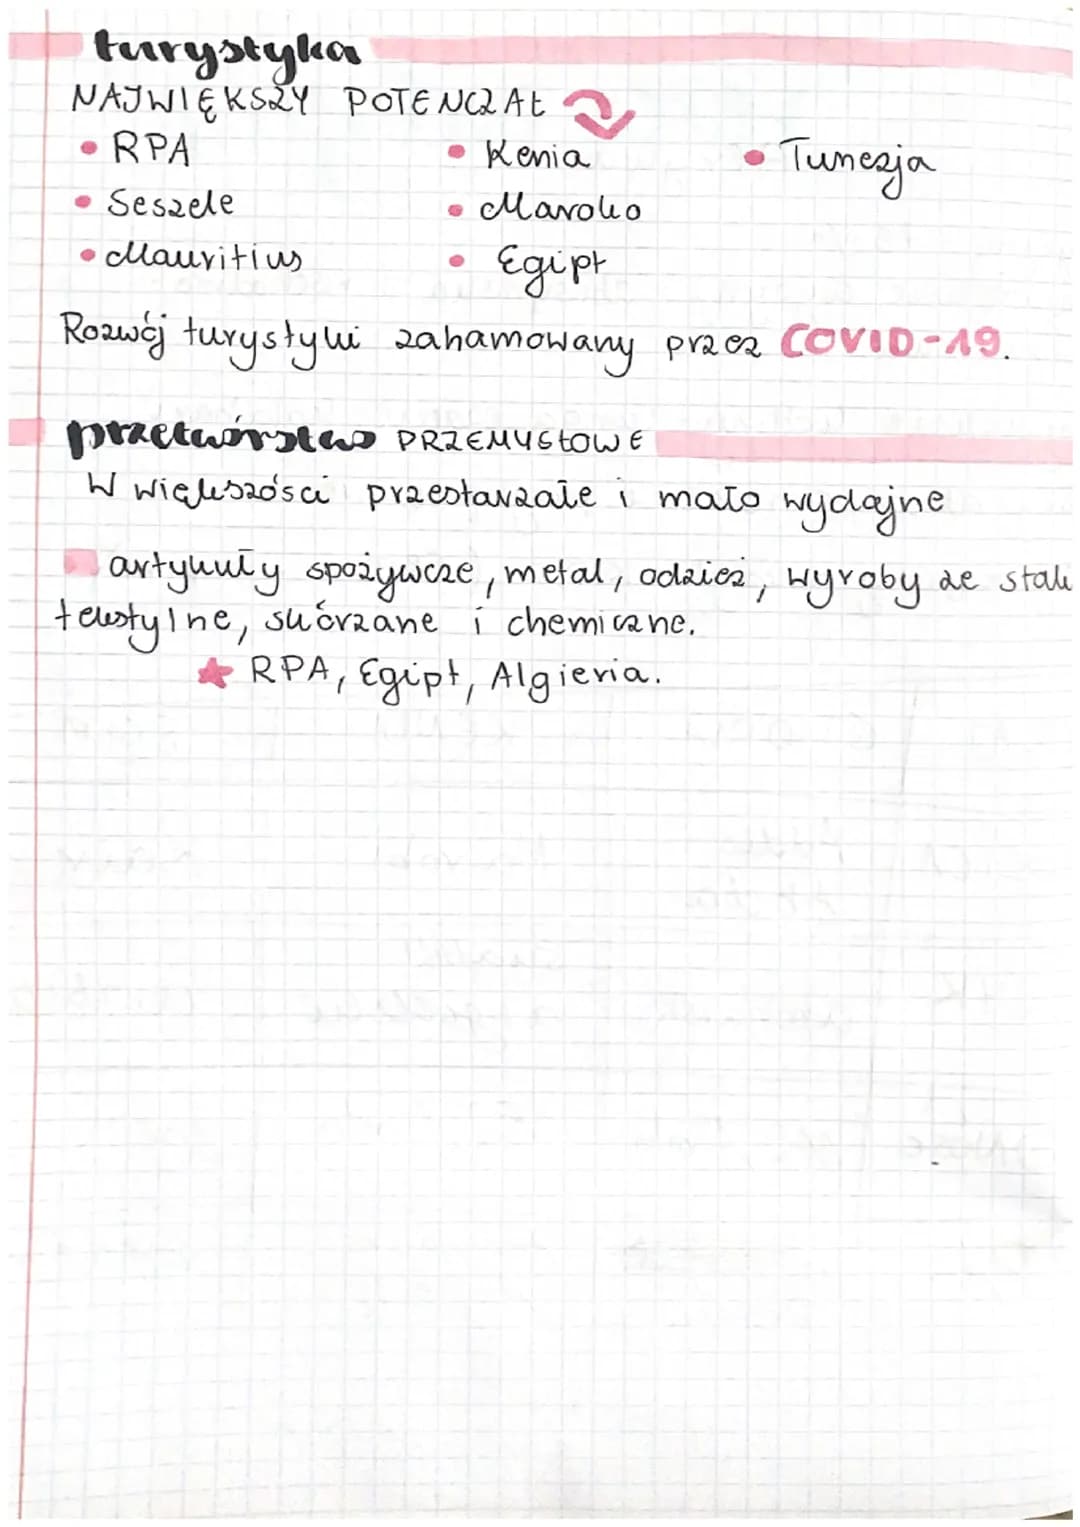 turystyka
NAJWIĘKSZY POTENCZAŁ
• RPA • Kenia • Tunezja
• Seszele • Maroko
• Mauritius • Egipt
Rozwój turystyki zahamowany przez COVID-19.
przetwórstwo PRZEMYSŁOWE
W większości przestarzałe i mało wydajne
artykuły spożywcze, metal, odzież, wyroby ze stali
tekstylne, skórzane i chemiczne.
★ RPA, Egipt, Algieria.